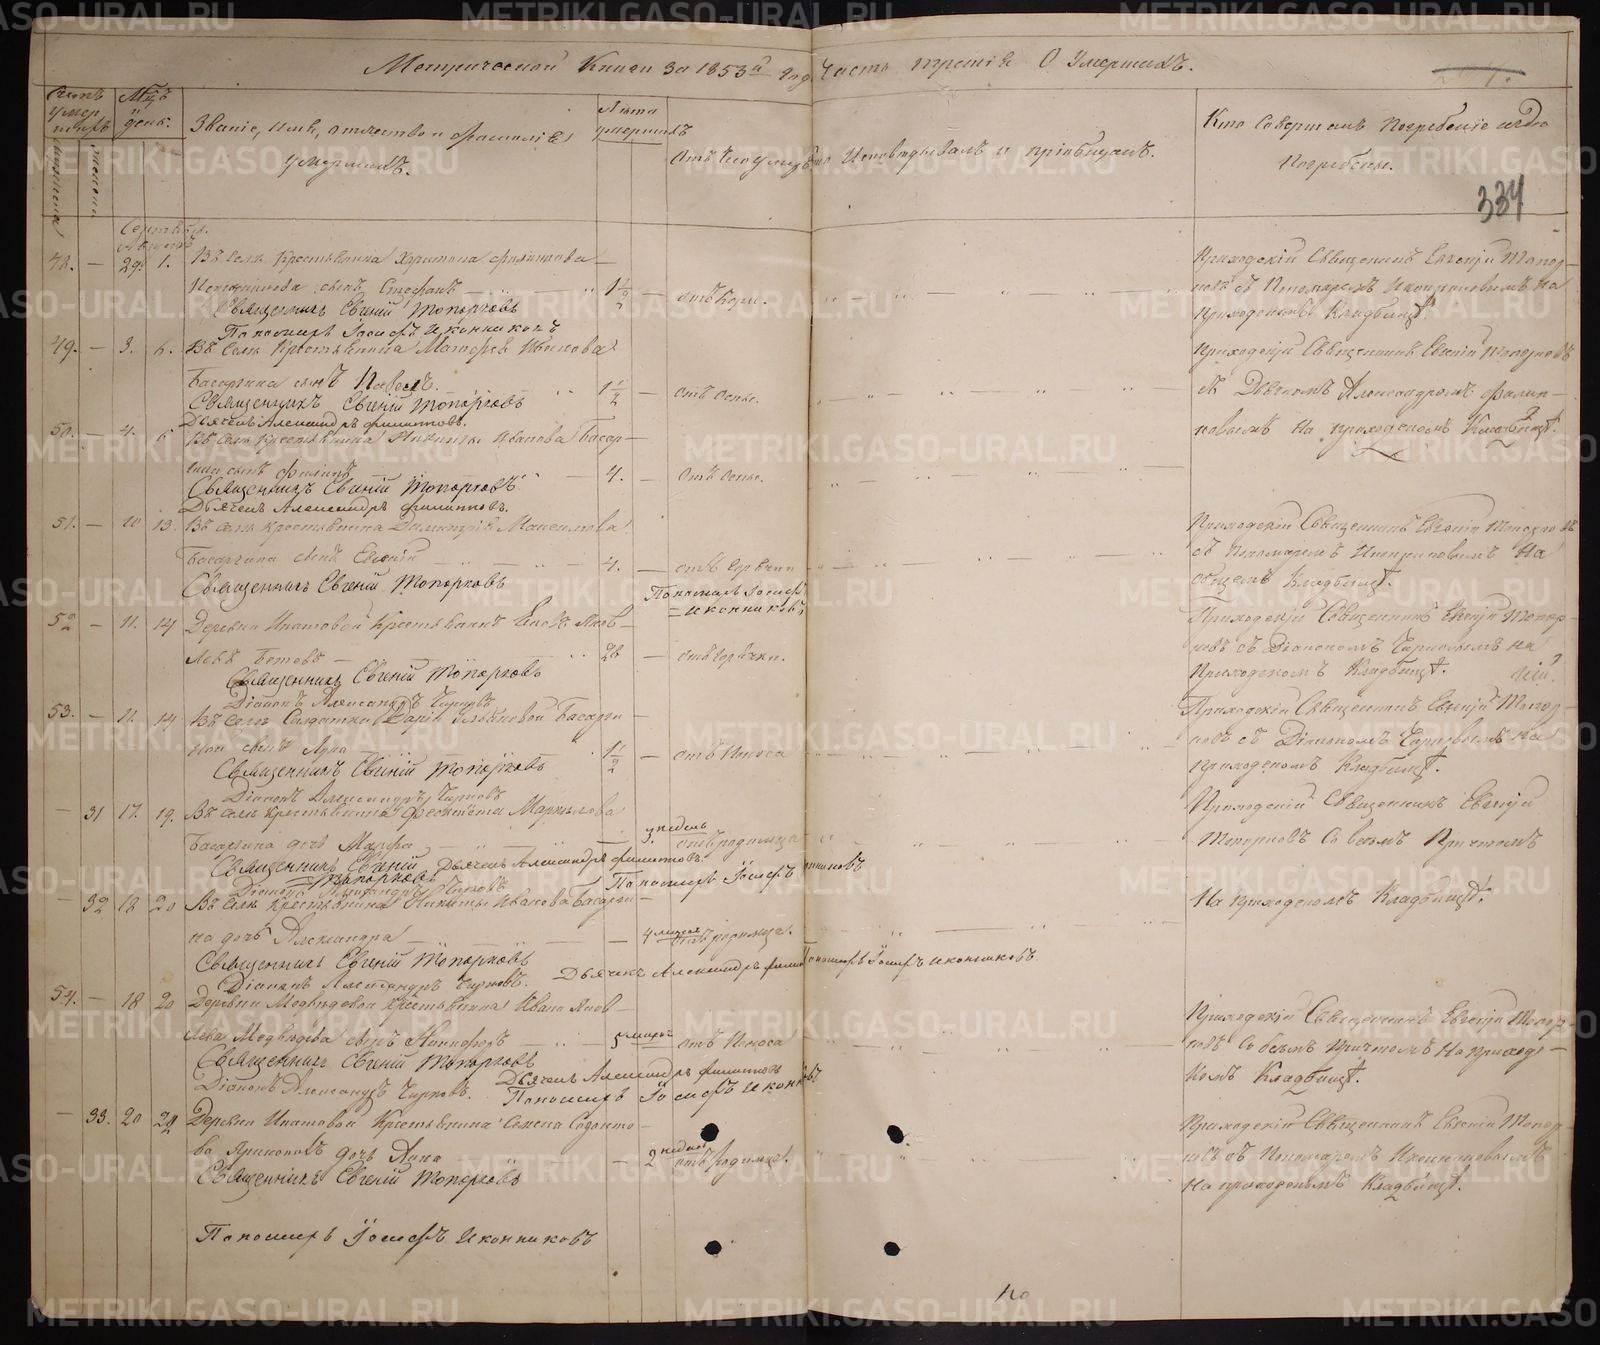 Метрической Книги За 1853й Годъ Часть третія О Умершихъ.
Счетъ умершихъ
Мѣсяцъ и день.
Званіе, имя, отечество и фамилія умершихъ.
Лѣта умершихъ
Отъ чего умеръ
Кто Исповѣдывалъ и пріобщалъ.
Кто Совершалъ Погребеніе и гдѣ Погребены.
мужеска
женска
334
Сентября.
Августа
48. — 29. 1. Въ Селѣ Крестьянина Харитона Филиппова
сынъ Стефанъ — 1 1/2 — отъ Кори.
Приходскій Священникъ Евгеній Топор-
ковъ съ Пономаремъ Иконниковымъ на
приходскомъ Кладбищѣ.
Священникъ Евгеній Топорковъ
Пономарь Іосифъ Иконниковъ
49. — 3. 6. Въ Селѣ Крестьянина Матфея Иванова
Басаргина сынъ Павелъ. 1 1/2 — отъ Оспы.
Приходскій Священникъ Евгеній Топорковъ
съ Дьячкомъ Александромъ Филип-
повымъ на приходскомъ Кладбищѣ.
Священникъ Евгеній Топорковъ
Дьячекъ Александръ Филипповъ.
50. — 4. 6 Въ Селѣ Крестьянина Никиты Иванова Басар-
гина сынъ Филипъ — 4. — отъ Оспы.
Священникъ Евгеній Топорковъ
Дьячекъ Александръ Филипповъ.
51. — 10 13. Въ Селѣ Крестьянина Димитрія Максимова
Басаргина сынъ Евгеній — 4. — отъ Горячки
Приходскій Священникъ Евгеній Топорковъ
съ Пономаремъ Иконниковымъ на
общемъ Кладбищѣ.
Священникъ Евгеній Топорковъ
Пономарь Іосифъ
Иконниковъ
52 — 11. 14 Деревни Ипатовой Крестьянинъ Яков-
левъ — 28 — отъ Горячки.
Приходскій Священникъ Евгеній Топор-
ковъ съ Діакономъ Чирковымъ на
Приходскомъ Кладбищѣ.
Священникъ Евгеній Топорковъ
Діаконъ Александръ Чирковъ
53. — 11. 14 Въ Селѣ Солдатки Даріи Басарги-
ной сынъ — 1 1/2 — отъ Поноса
Приходскій Священникъ Евгеній Топор-
ковъ съ Діакономъ Чирковымъ на
приходскомъ Кладбищѣ.
Священникъ Евгеній Топорковъ
Діаконъ Александръ Чирковъ
— 31 17. 19. Въ Селѣ Крестьянина Маркелова
Басаргина дочь Марфа — 3 недель отъ родимца
Приходскій Священникъ Евгеній
Топорковъ Со всемъ Причтомъ
Священникъ Евгеній Топорковъ Дьячекъ Александръ Филипповъ.
Діаконъ Александръ Чирковъ Пономарь Іосифъ Иконниковъ
— 32 18 20 Въ Селѣ Крестьянина Никиты Иванова Басарги-
на дочь Александра — 4 отъ родимца.
На приходскомъ Кладбищѣ.
Священникъ Евгеній Топорковъ
Діаконъ Александръ Чирковъ. Дьячекъ Александръ Филипповъ Пономарь Іосифъ Иконниковъ.
54. — 18 20 Деревни Медведевой Крестьянина Ивана Яков-
лева Медведева сынъ Никифоръ — 5 отъ Поноса
Приходскій Священникъ Евгеній Топор-
ковъ Со всемъ Причтомъ На приходс-
комъ Кладбищѣ.
Священникъ Евгеній Топорковъ
Дьячекъ Александръ Филипповъ
Діаконъ Александръ Чирковъ. Пономарь Іосифъ Иконниковъ
— 33. 20 22 Деревни Ипатовой Крестьянина Семена
дочь Анна — 2 недѣли отъ Родимца.
Приходскій Священникъ Евгеній Топор-
ковъ съ Пономаремъ Иконниковымъ
На приходскомъ Кладбищѣ.
Священникъ Евгеній Топорковъ
Пономарь Іосифъ Иконниковъ
METRIKI.GASO-URAL.RU